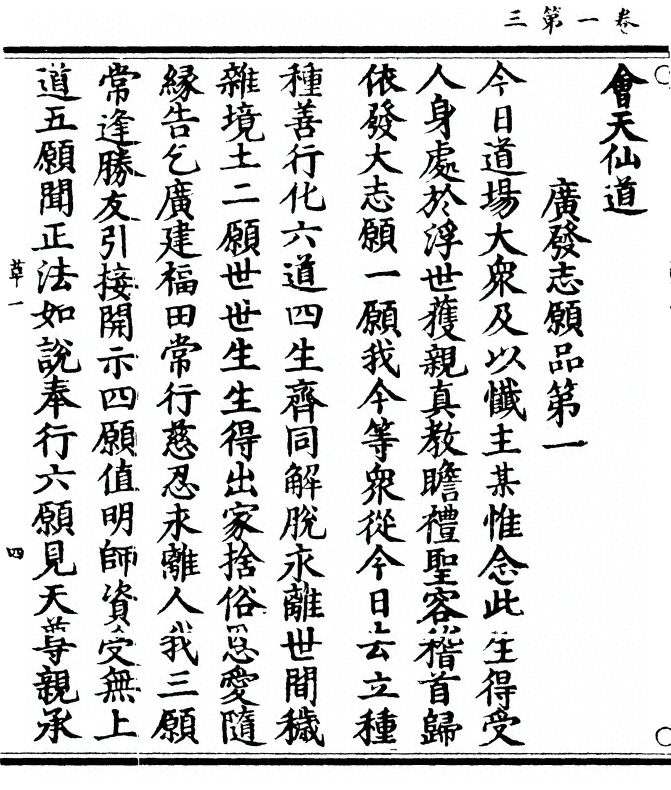 卷一第三
會天仙道
廣發志願品第一
今日道場大衆及以懺主某惟念此生得受
人身處於浮世獲親真教瞻禮聖容稽首歸
依發大志願一願我今等衆從今日去立種
種善行化六道四生齊同解脫永離世間穢
雜境土二願世世生生得出家捨俗恩愛隨
緣告乞廣建福田常行慈忍永離人我三願
常逢勝友引接開示四願值明師資受無上
道五願聞正法如說奉行六願見天尊親承
草一
四